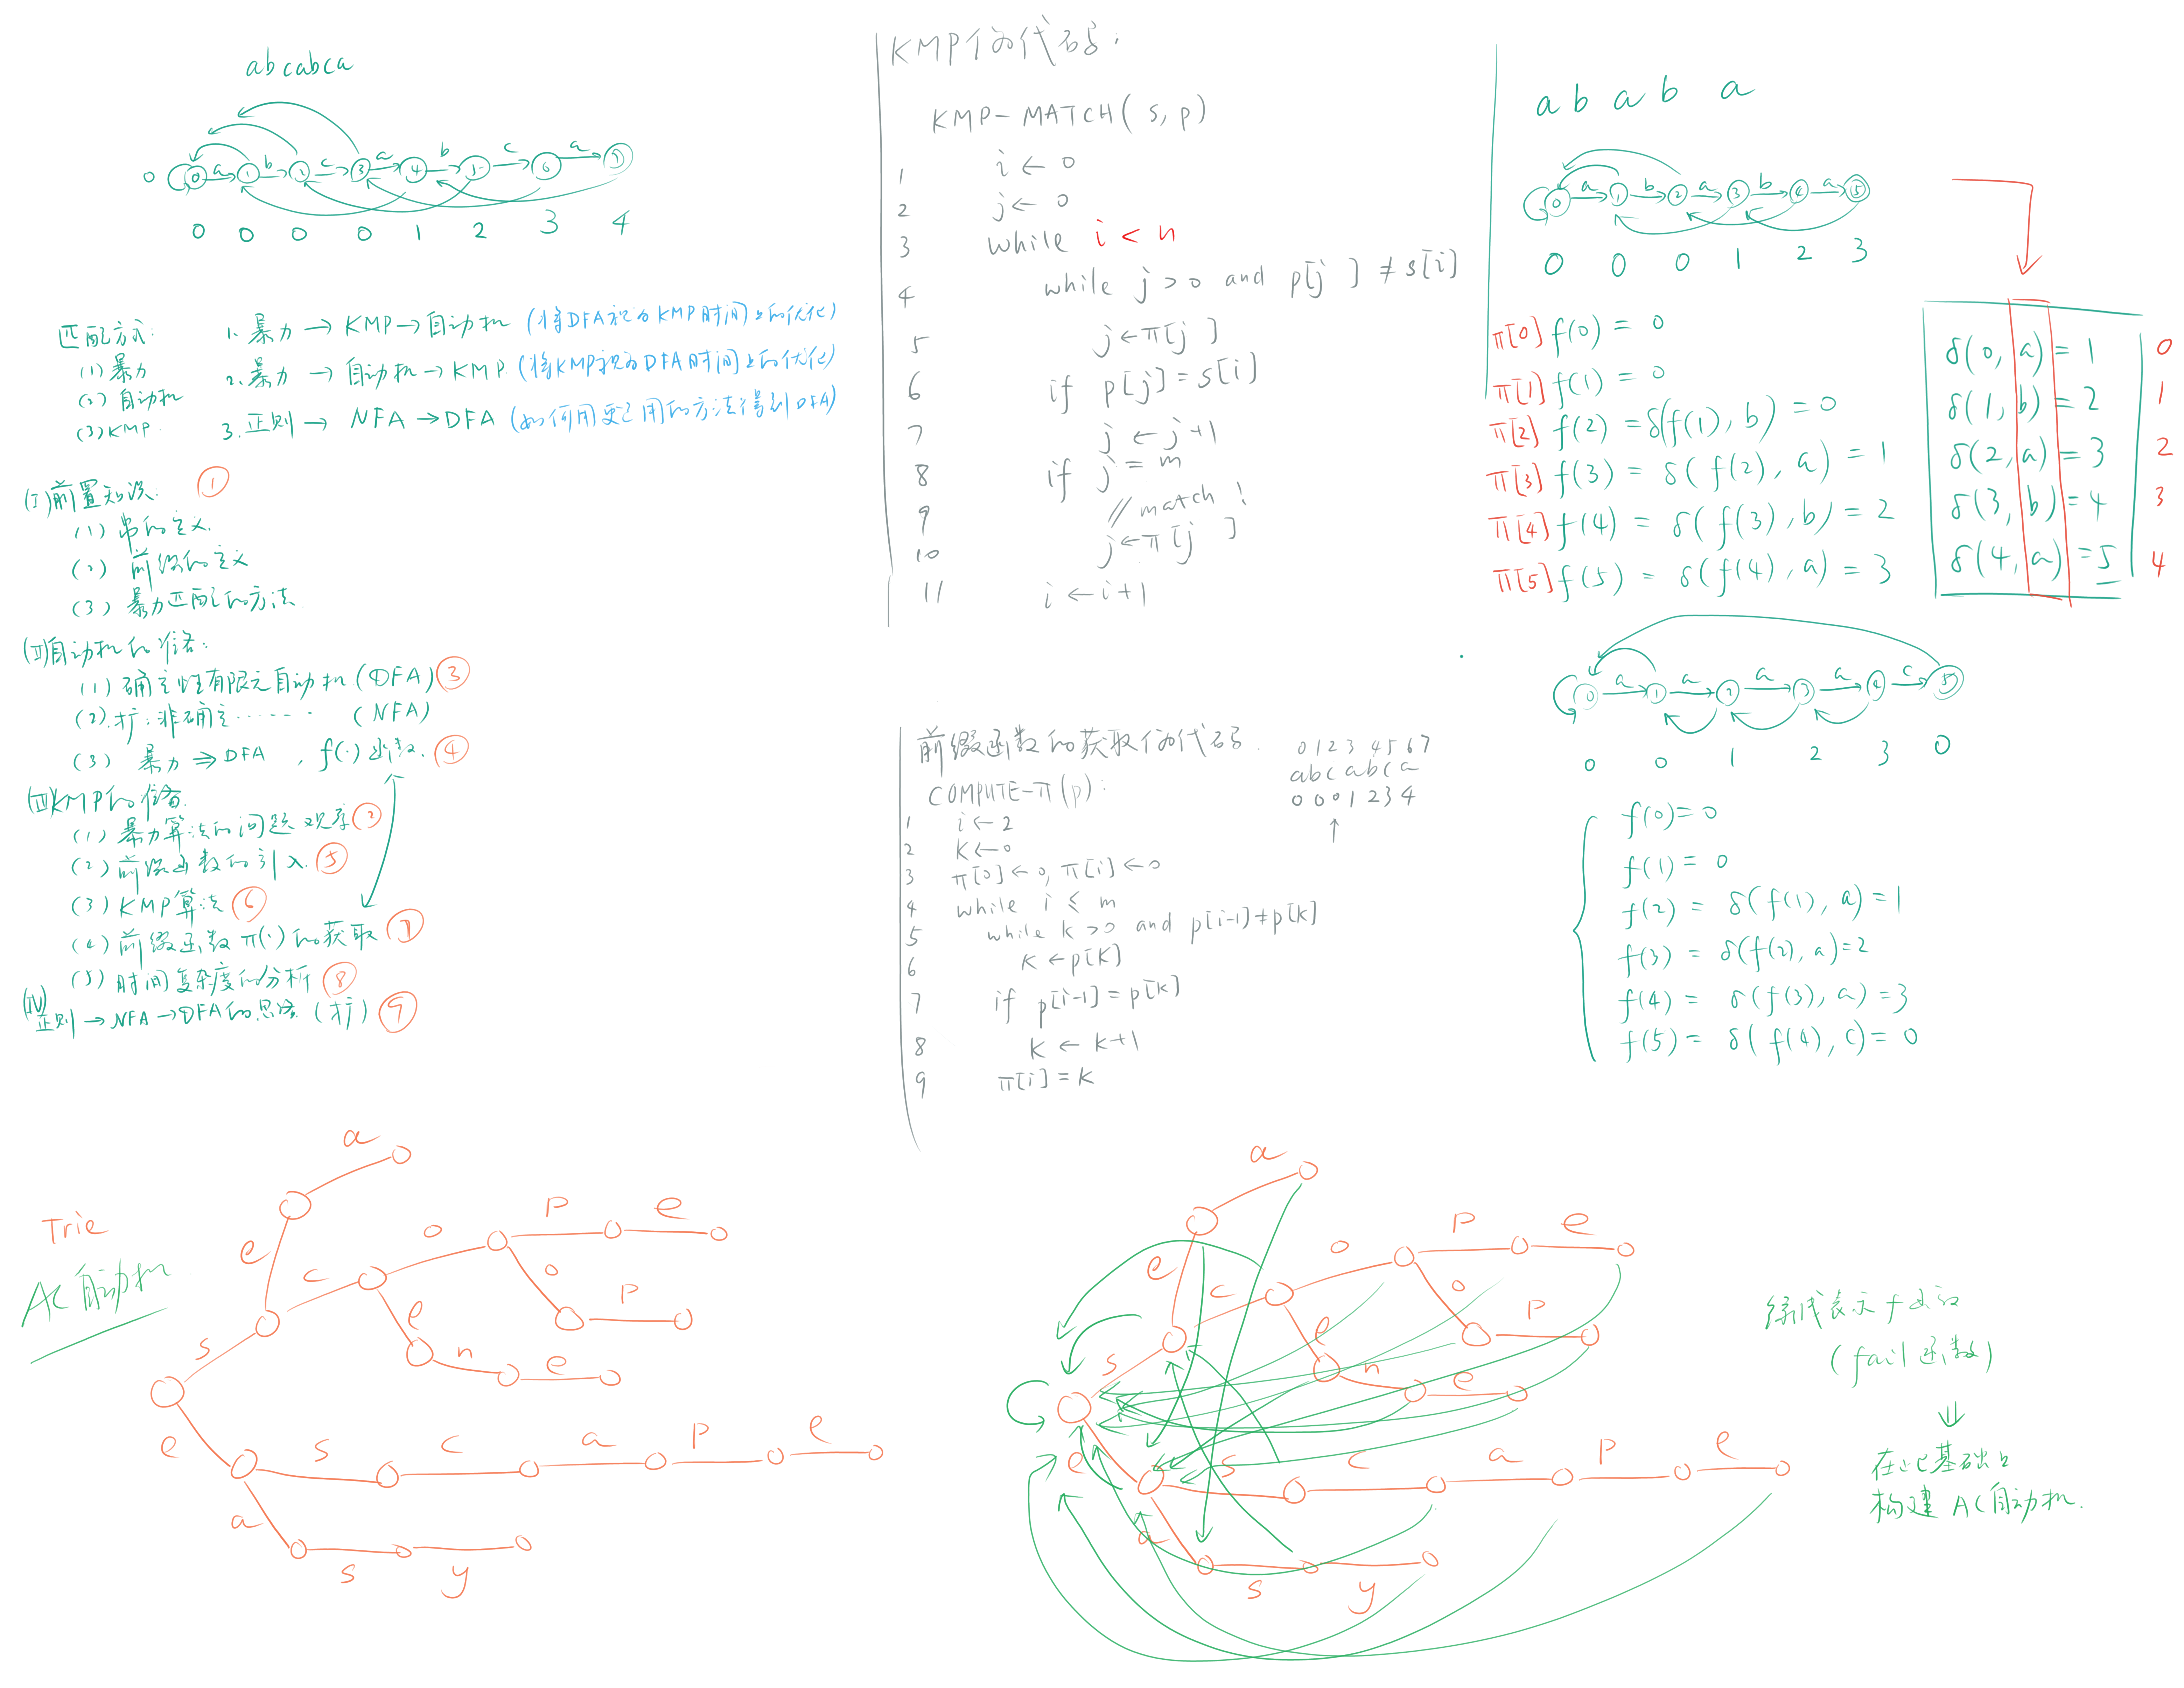 abcabca
0
0 1 2 3 4 5 6 7
a b c a b c a
0 0 0 0 1 2 3 4
匹配方式:
(1) 暴力
(2) 自动机
(3) KMP.
1. 暴力 → KMP → 自动机 (将DFA视为KMP时间上的优化)
2. 暴力 → 自动机 → KMP (将KMP视为DFA时间上的优化)
3. 正则 → NFA → DFA (如何用更通用的方法得到DFA)
(I) 前置知识: ①
(1) 串的定义.
(2) 前缀的定义
(3) 暴力匹配的方法.
(II) 自动机的准备:
(1) 确定性有限元自动机 (DFA) ③
(2) 扩: 非确定…… (NFA)
(3) 暴力 ⇒ DFA , f(·)函数. ④
(III) KMP的准备
(1) 暴力算法的问题观察 ②
(2) 前缀函数的引入. ⑤
(3) KMP算法 ⑥
(4) 前缀函数 π(·)的获取 ⑦
(5) 时间复杂度的分析 ⑧
(IV) 正则 → NFA → DFA的思路 (扩) ⑨
KMP伪代码:
KMP-MATCH(s, p)
1 i ← 0
2 j ← 0
3 while i < n
4 while j > 0 and p[j] ≠ s[i]
5 j ← π[j]
6 if p[j] = s[i]
7 j ← j+1
8 if j = m
9 // match!
10 j ← π[j]
11 i ← i+1
前缀函数的获取伪代码.
0 1 2 3 4 5 6 7
abcabca
0 0 0 1 2 3 4
↑
COMPUTE-π(p):
1 i ← 2
2 k ← 0
3 π[0] ← 0, π[i] ← 0
4 while i ≤ m
5 while k > 0 and p[i-1] ≠ p[k]
6 k ← p[k]
7 if p[i-1] = p[k]
8 k ← k+1
9 π[i] = k
a b a b a
a b a b a
0 1 2 3 4 5
0 0 0 1 2 3
π[0] f(0) = 0
π[1] f(1) = 0
π[2] f(2) = δ(f(1), b) = 0
π[3] f(3) = δ(f(2), a) = 1
π[4] f(4) = δ(f(3), b) = 2
π[5] f(5) = δ(f(4), a) = 3
δ(0, a) = 1 0
δ(1, b) = 2 1
δ(2, a) = 3 2
δ(3, b) = 4 3
δ(4, a) = 5 4
a a a a c
0 1 2 3 4 5
0 0 1 2 3 0
f(0) = 0
f(1) = 0
f(2) = δ(f(1), a) = 1
f(3) = δ(f(2), a) = 2
f(4) = δ(f(3), a) = 3
f(5) = δ(f(4), c) = 0
Trie
AC自动机
a
e
c o p e
o p
e n e
s
e s c a p e
a s y
a
e
c o p e
o p
e n e
s
e s c a p e
a s y
绿线表示 f 函数
(fail函数)
⇓
在此基础上
构建 AC自动机.